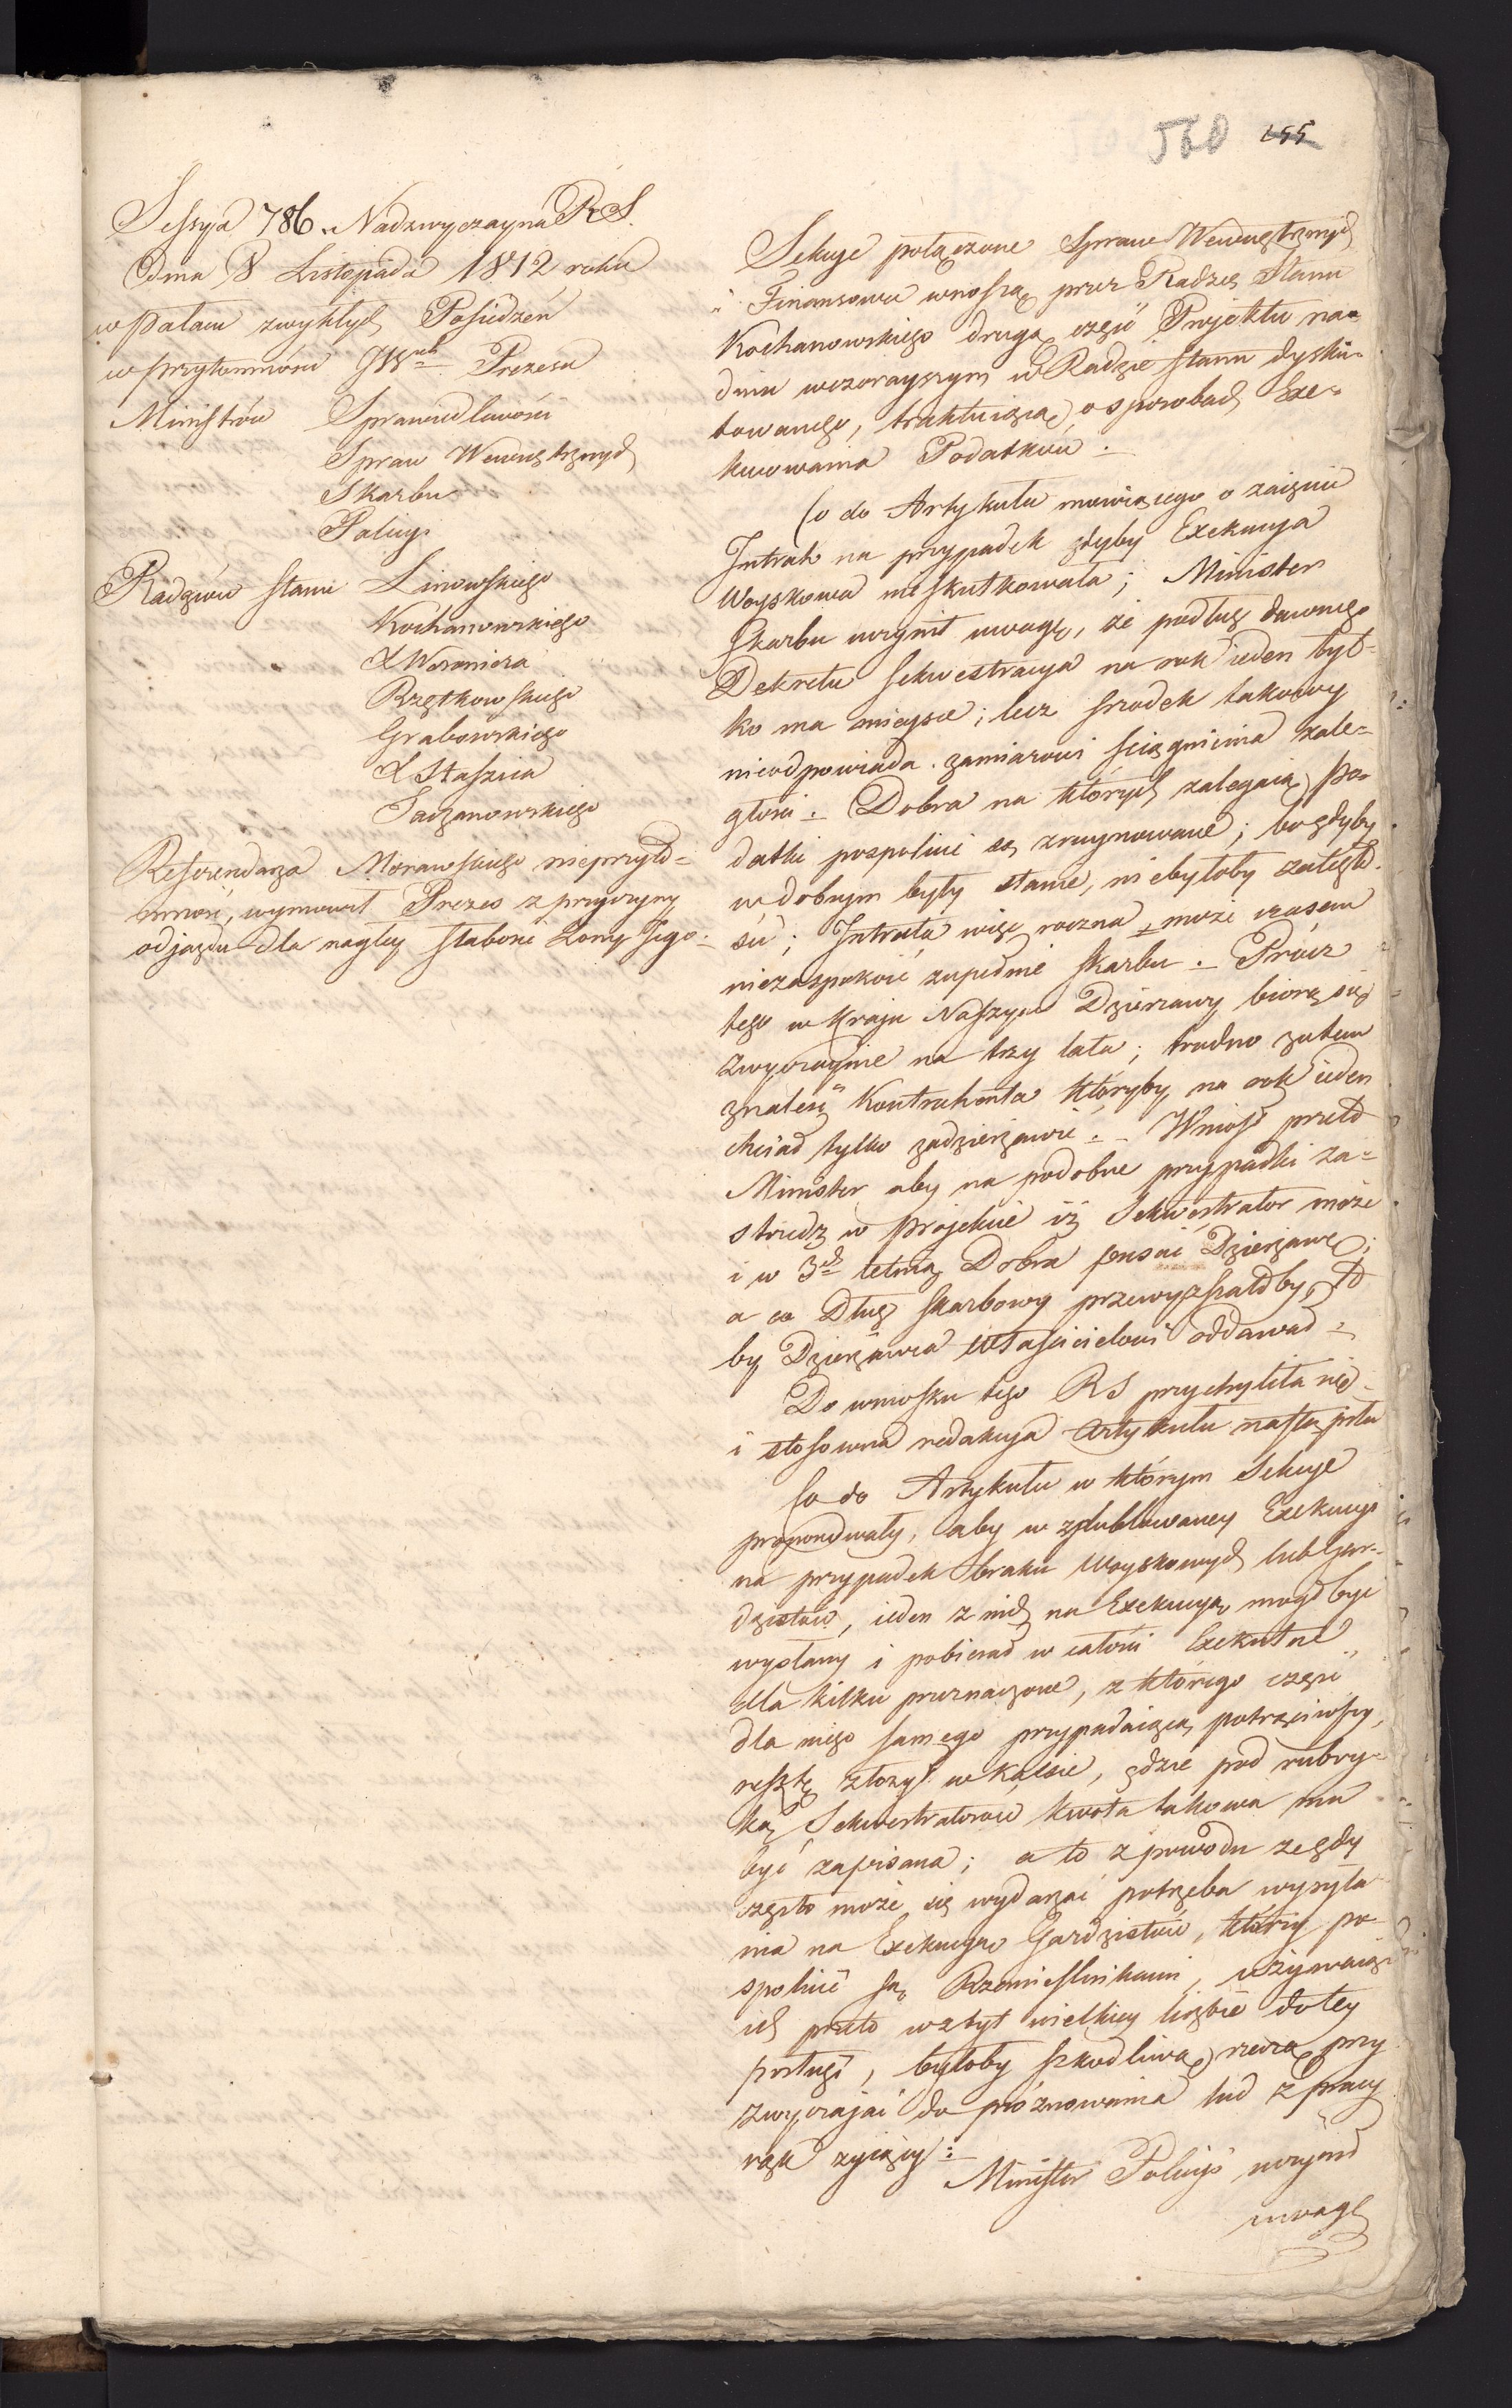 560 155
Sessya 786. Nadzwyczayna RS.
Dnia 8 Listopada 1812 roku
w pałacu zwykłych Posiedzeń
w przytomności JW. Prezesa
Ministrów Sprawiedliwości
Spraw Wewnętrznych
Skarbu
Policyi
Radzców Stanu Linowskiego
Kochanowskiego
X Woronicza
Rzętkowskiego
Grabowskiego
X Staszica
Taczanowskiego
Referendarza Morawskiego nieprzyto=
mność, wymówił Prezes z przyczyny
odjazdu dla nagłey słabości Żony Jego.
Sekcye połączone Spraw Wewnętrznych
i Finansowa wnoszą przez Radzcę Stanu
Kochanowskiego drugą część Projektu na
dniu wczorayszym w Radzie Stanu dysku=
towanego, traktuiącą o sposobach Exe=
kwowania Podatków.
Co do Artykułu mówiącego o zaięciu
Intrat na przypadek gdyby Exekucya
Woyskowa nie skutkowała; Minister
Skarbu uczynił uwagę, że podług dawnego
Dekretu sekwestracya na rok ieden tyl=
ko ma mieysce; lecz srzodek takowy
nieodpowiada zamiarowi sciągnienia zale=
głości. Dobra na których zalegaią po=
datki pospolicie są zruynowane; bo gdyby
w dobrym były stanie, niebyłoby zaległo=
ści; Intrata więc roczna może czasem
niezaspokoić zupełnie Skarbu. Prócz
tego w Kraju Naszym Dzierzawy biorą się
zwyczaynie na trzy lata; trudno zatem
znaleść Kontrahenta któryby na rok ieden
chciał tylko zadzierżawić. Wniosł przeto
Minister aby na podobne przypadki za=
strzedz w projekcie iż Sekwestrator może
i w 3ch letnią Dobra puscić Dzierżawę;
a co Dług skarbowy przewyższałoby, to
by Dzierżawca Właścicielowi oddawał.
Do wniosku tego RS przychyliła się
i stosowna redakcya Artykułu nastąpiła
Co do Artykułu w którym Sekcye
proponowały, aby w zdublowaney Exekucyi
na przypadek braku Woyskowych lub Gwar=
dzistów, ieden z nich na Exekucyą mógł być
wysłany i pobierał w całości Exekutne
dla kilku przeznaczone, z którego część
dla niego samego przypadaiącą potrąciwszy,
resztę złożył w Kassie, gdzie pod rubry=
ką Sekwestratorów kwota takowa ma
być zapisana; a to z powodu że gdy
często może się wydarzać potrzeba wysyła=
nia na Exekucyą Gardzistów, którzy po=
spolicie są Rzemieślnikami, używaiąc
ich przeto w zbyt wielkiey liczbie do tey
posługi, byłoby szkodliwą rzeczą przy
zwyczajać do próżnowania lud z pracy
rąk żyiący.
Minister Policyi uczynił
uwagę